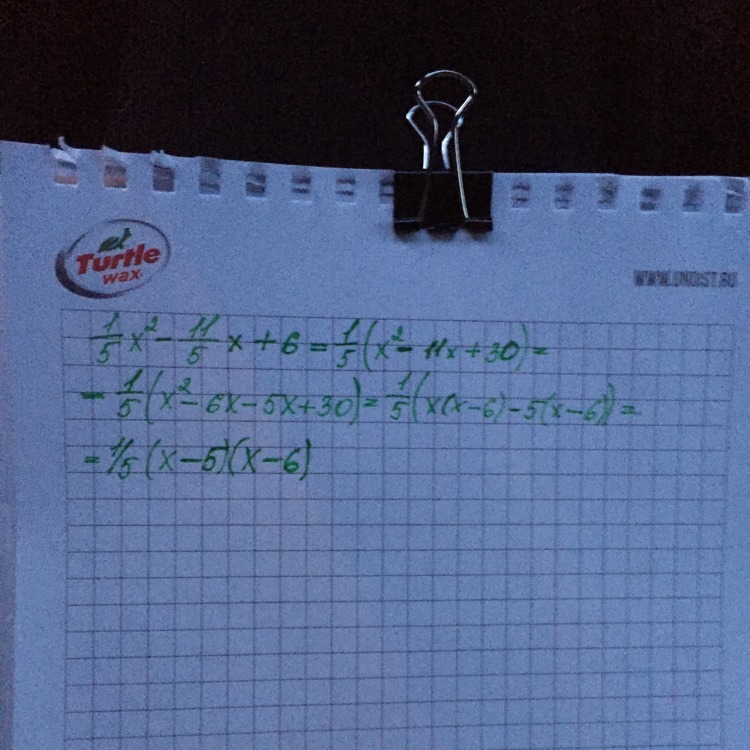 Turtle
wax
WWW.UNIDIST.RU
1/5 x² - 11/5 x + 6 = 1/5 (x² - 11x + 30) =
= 1/5 (x² - 6x - 5x + 30) = 1/5 (x(x-6) - 5(x-6)) =
= 1/5 (x-5)(x-6)